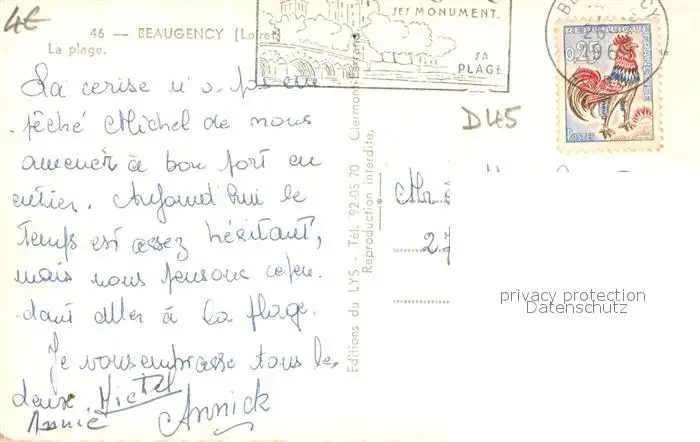 4€
46 — BEAUGENCY (Loiret)
La plage.
SES MONUMENTS
SA
PLAGE
BEAUGENCY
0,25
REPUBLIQUE FRANÇAISE
POSTES
D45
La cerise n'a pas em-
pêché Michel de nous
amener à bon port en
entier. Aujourd'hui le
Temps est assez hésitant,
mais nous pensons cepen-
dant aller à la plage.
Je vous embrasse tous les
deux. Michel
Annie Annick
Editions du LYS - Tél. 92-05 70 Clermont-Ferrand
Reproduction interdite.
Mr
27
privacy protection
Datenschutz